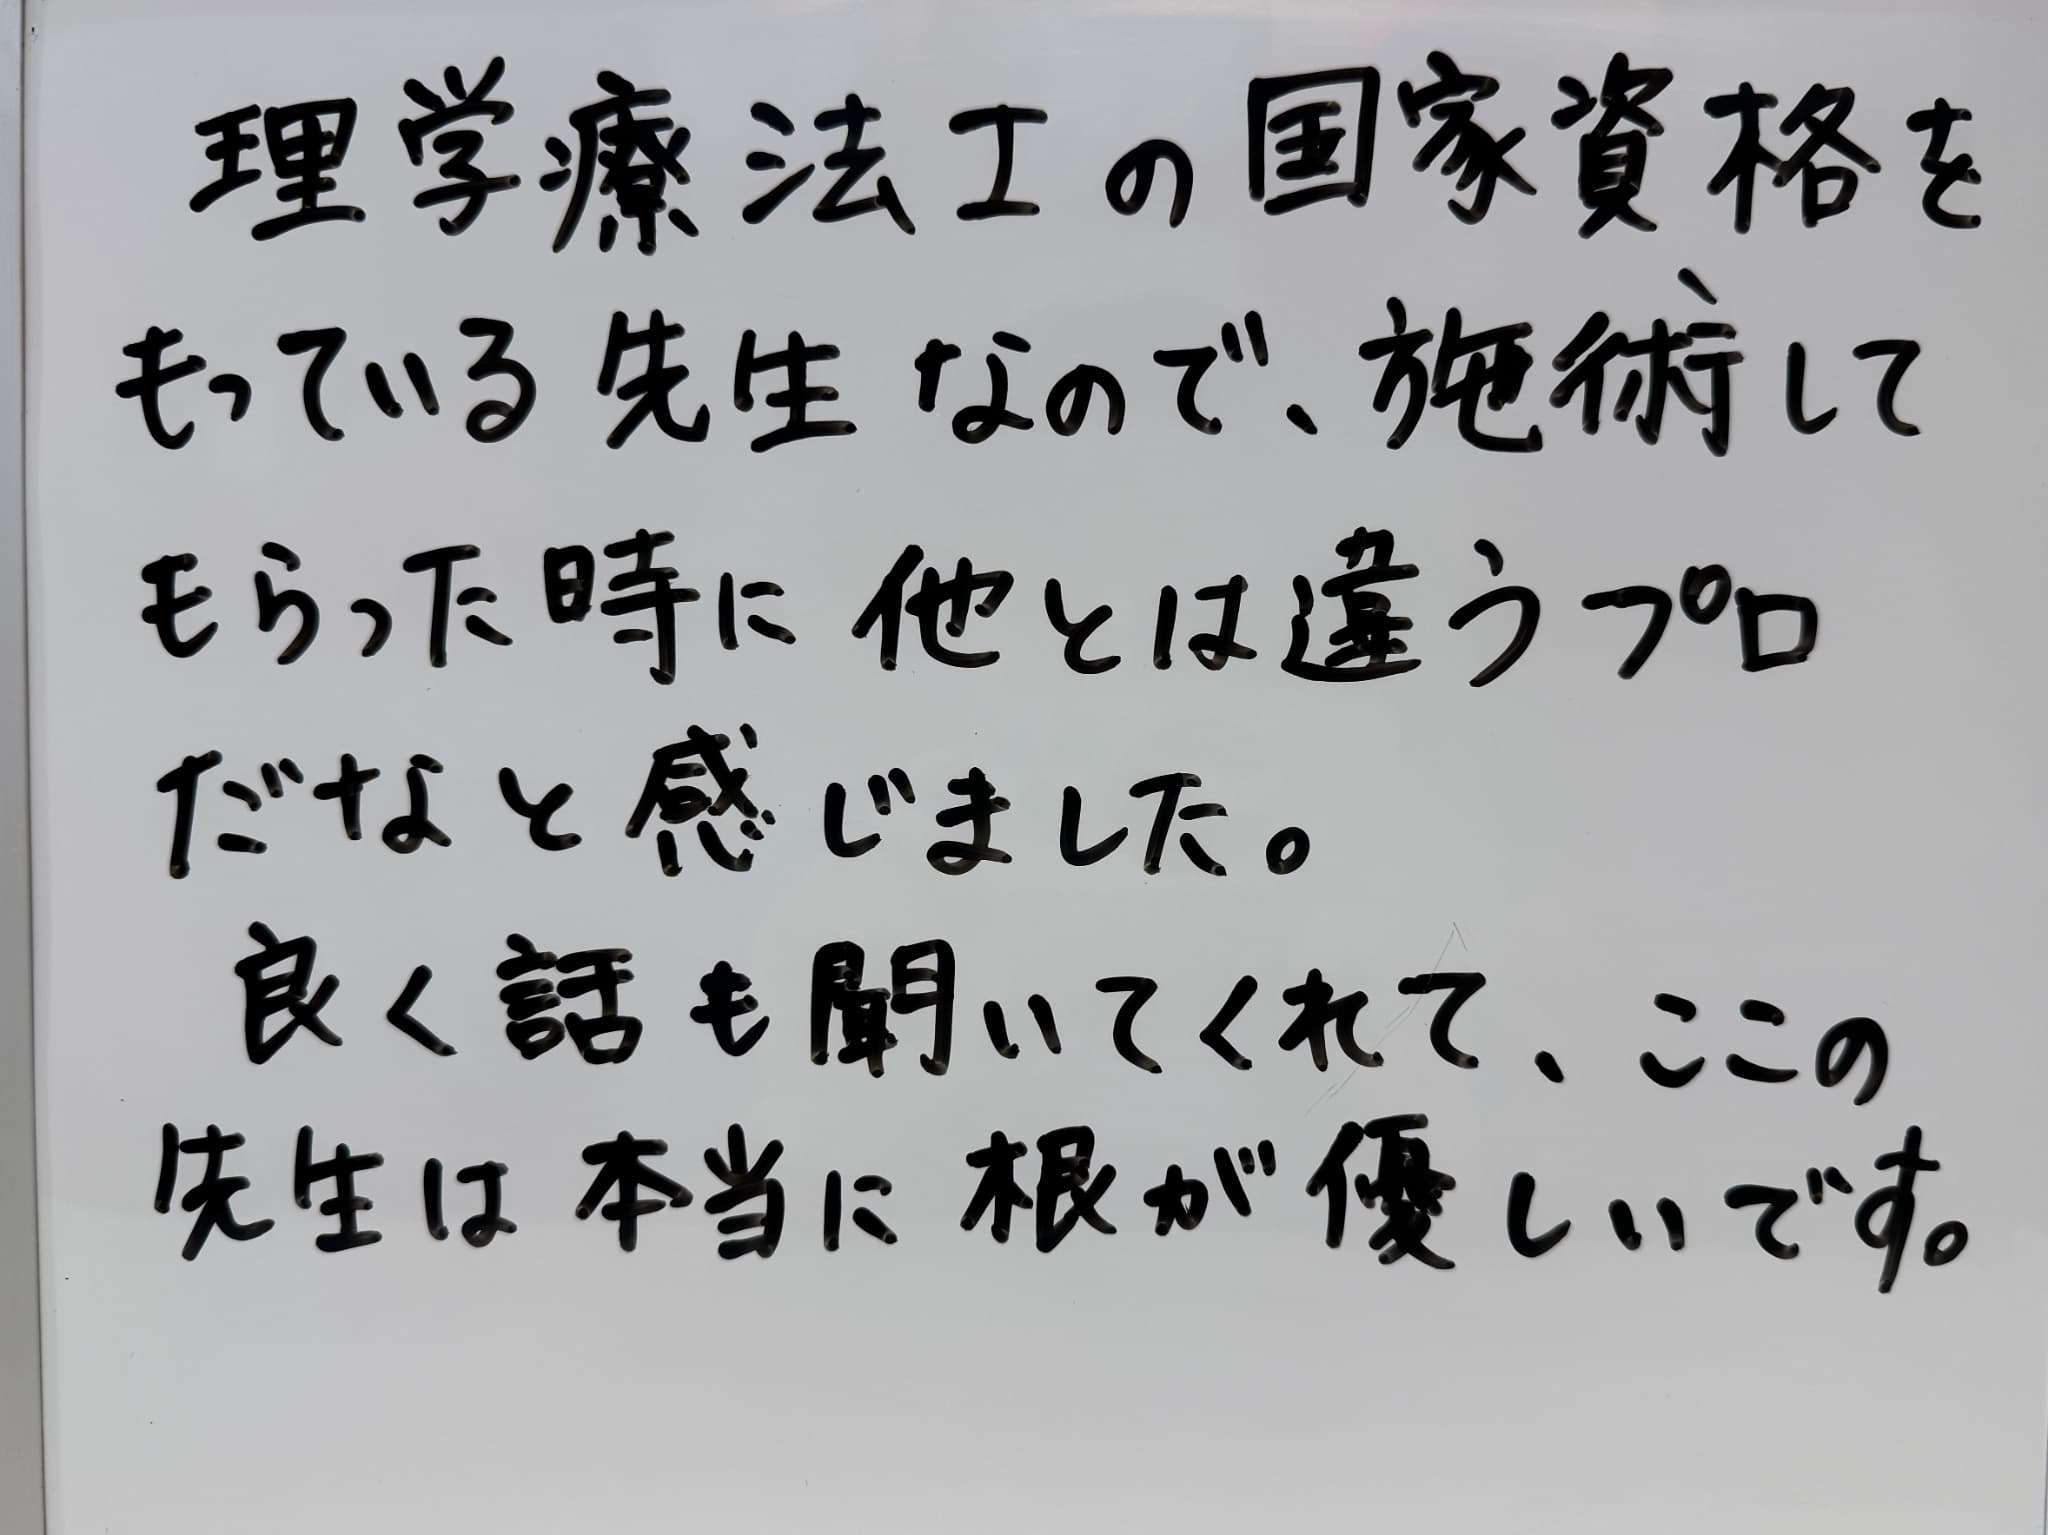 理学療法士の国家資格を
もっている先生なので、施術して
もらった時に他とは違うプロ
だなと感じました。
良く話も聞いてくれて、ここの
先生は本当に根が優しいです。